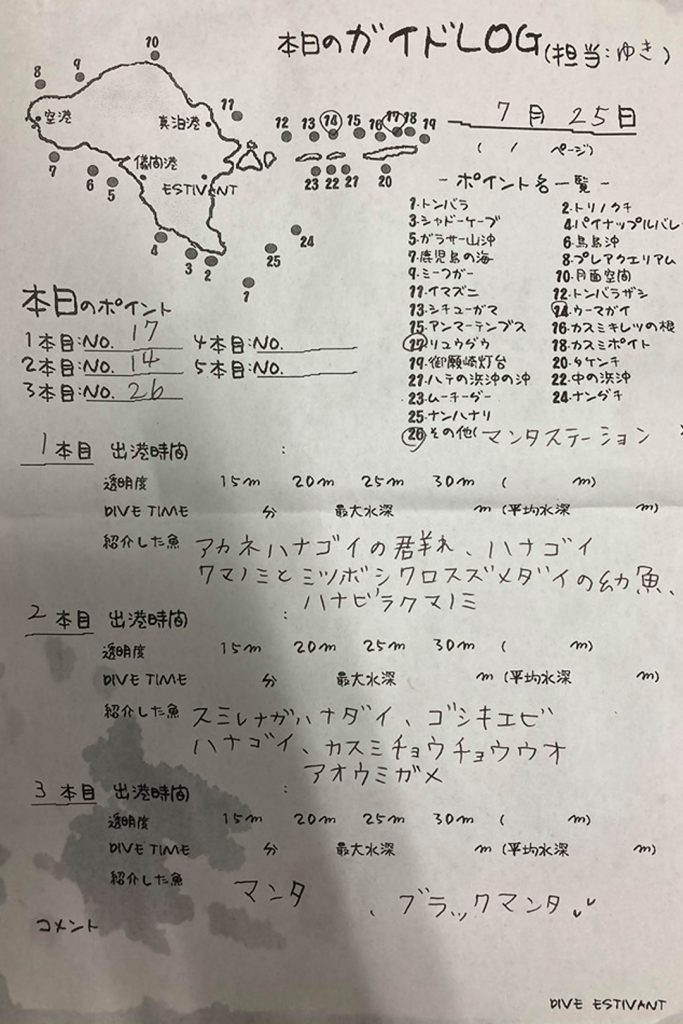 本日のガイドLOG(担当:ゆき)
7月25日
( / ページ)
10
8 9
空港 真泊港 11
12 13 14 15 16 17 18 19
7 6 5 儀間港
ESTIVANT
23 22 21 20
4 3 2 24 25
1
-ポイント名一覧-
1.トンバラ 2.トリノクチ
3.シャドーケーブ 4.パイナップルバレ
5.ガラサー山沖 6.鳥島沖
7.鹿児島の海 8.プレアクエリアム
9.ミーフガー 10.月面空間
11.イマズニ 12.トンバラザシ
13.シチューガマ 14.ウーマガイ
15.アンマーテンブス 16.カスミキレツの根
17.リュウグウ 18.カスミポイト
19.御願崎灯台 20.タケンチ
21.ハテの浜沖の沖 22.中の浜沖
23.ムーチーグー 24.ナングチ
25.ナンハナリ
26.その他(マンタステーション )
本日のポイント
1本目:NO. 17 4本目:NO.
2本目:NO. 14 5本目:NO.
3本目:NO. 26
1本目 出港時間 :
透明度 15m 20m 25m 30m ( m)
DIVE TIME 分 最大水深 m (平均水深 m)
紹介した魚 アカネハナゴイの群れ、ハナゴイ
クマノミとミツボシクロスズメダイの幼魚、
ハナビラクマノミ
2本目 出港時間 :
透明度 15m 20m 25m 30m ( m)
DIVE TIME 分 最大水深 m (平均水深 m)
紹介した魚 スミレナガハナダイ、ゴシキエビ
ハナゴイ、カスミチョウチョウウオ
アオウミガメ
3本目 出港時間 :
透明度 15m 20m 25m 30m ( m)
DIVE TIME 分 最大水深 m (平均水深 m)
紹介した魚 マンタ 、ブラックマンタ
コメント
DIVE ESTIVANT